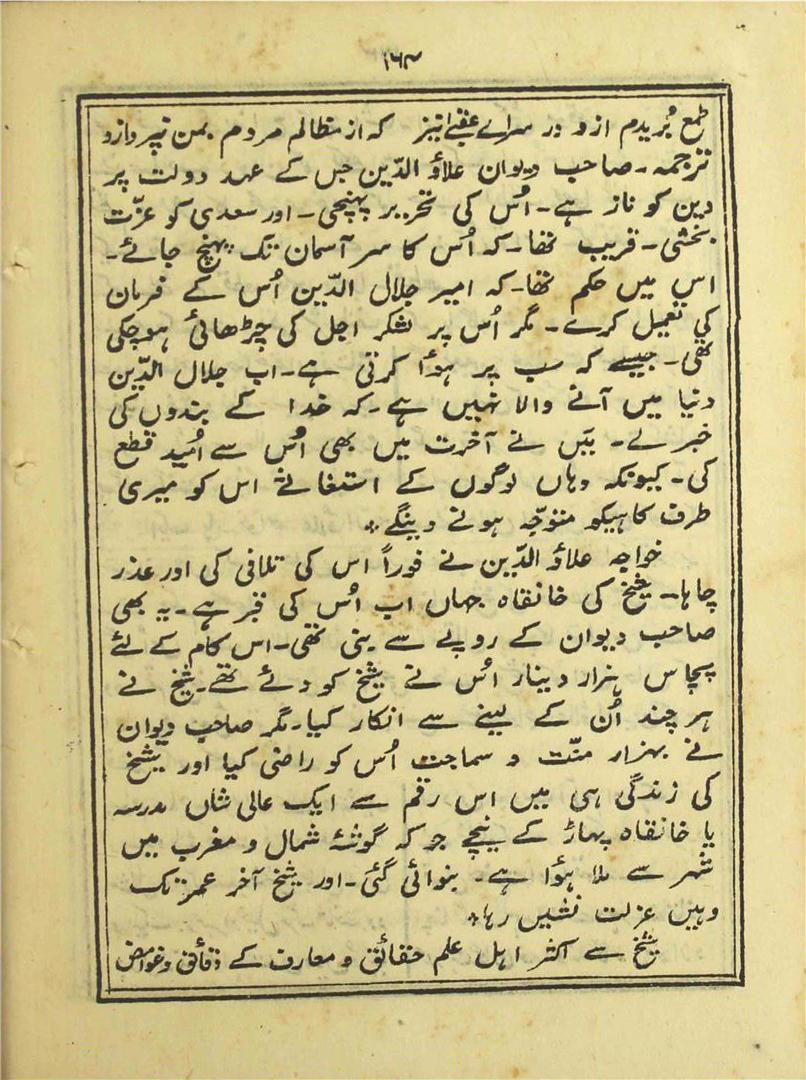 ۱۶۳
طمع بُریدم ازو در سرائے عقبےٰ نیز که از مظالم مردم بمن نپردازد
ترجمہ۔ صاحب دیوان علاؤ الدّین جس کے عہد دولت پر
دین کو ناز ہے۔ اُس کی تحریر پہنچی۔ اور سعدی کو عزّت
بخشی۔ قریب تھا۔ کہ اُس کا سر آسمان تک پہنچ جائے۔
اس میں حکم تھا۔ کہ امیر جلال الدّین اُس کے فرمان
کی تعمیل کرے۔ مگر اُس پر لشکر اجل کی چڑھائی ہو چکی
تھی۔ جیسے کہ سب پر ہوٴا کرتی ہے۔ اب جلال الدّین
دنیا میں آنے والا نہیں ہے۔ کہ خدا کے بندوں کی
خبر لے۔ مَیں نے آخرت میں بھی اُس سے اُمید قطع
کی۔ کیونکہ وہاں لوگوں کے استغاثے اس کو میری
طرف کاہیکو متوّجہ ہونے دینگے ٭
خواجہ علاؤ الدّین نے فوراً اس کی تلافی کی اور عذر
چاہا۔ شیخ کی خانقاہ جہاں اب اُس کی قبر ہے۔ یہ بھی
صاحب دیوان کے روپے سے بنی تھی۔ اس کام کے لئے
پچاس ہزار دینار اُس نے شیخ کو دئے تھے۔ شیخ نے
ہر چند اُن کے لینے سے انکار کیا۔ مگر صاحب دیوان
نے بہزار منّت و سماجت اُس کو راضی کیا اور شیخ
کی زندگی ہی میں اس رقم سے ایک عالی شاں مدرسہ
یا خانقاہ پہاڑ کے نیچے جو کہ گوشۂ شمال و مغرب میں
شہر سے ملا ہوٴا ہے۔ بنوائی گئی۔ اور شیخ آخر عمر تک
وہیں عزلت نشیں رہا ٭
شیخ سے اکثر اہل علم حقائق و معارف کے دقائق و غوامض